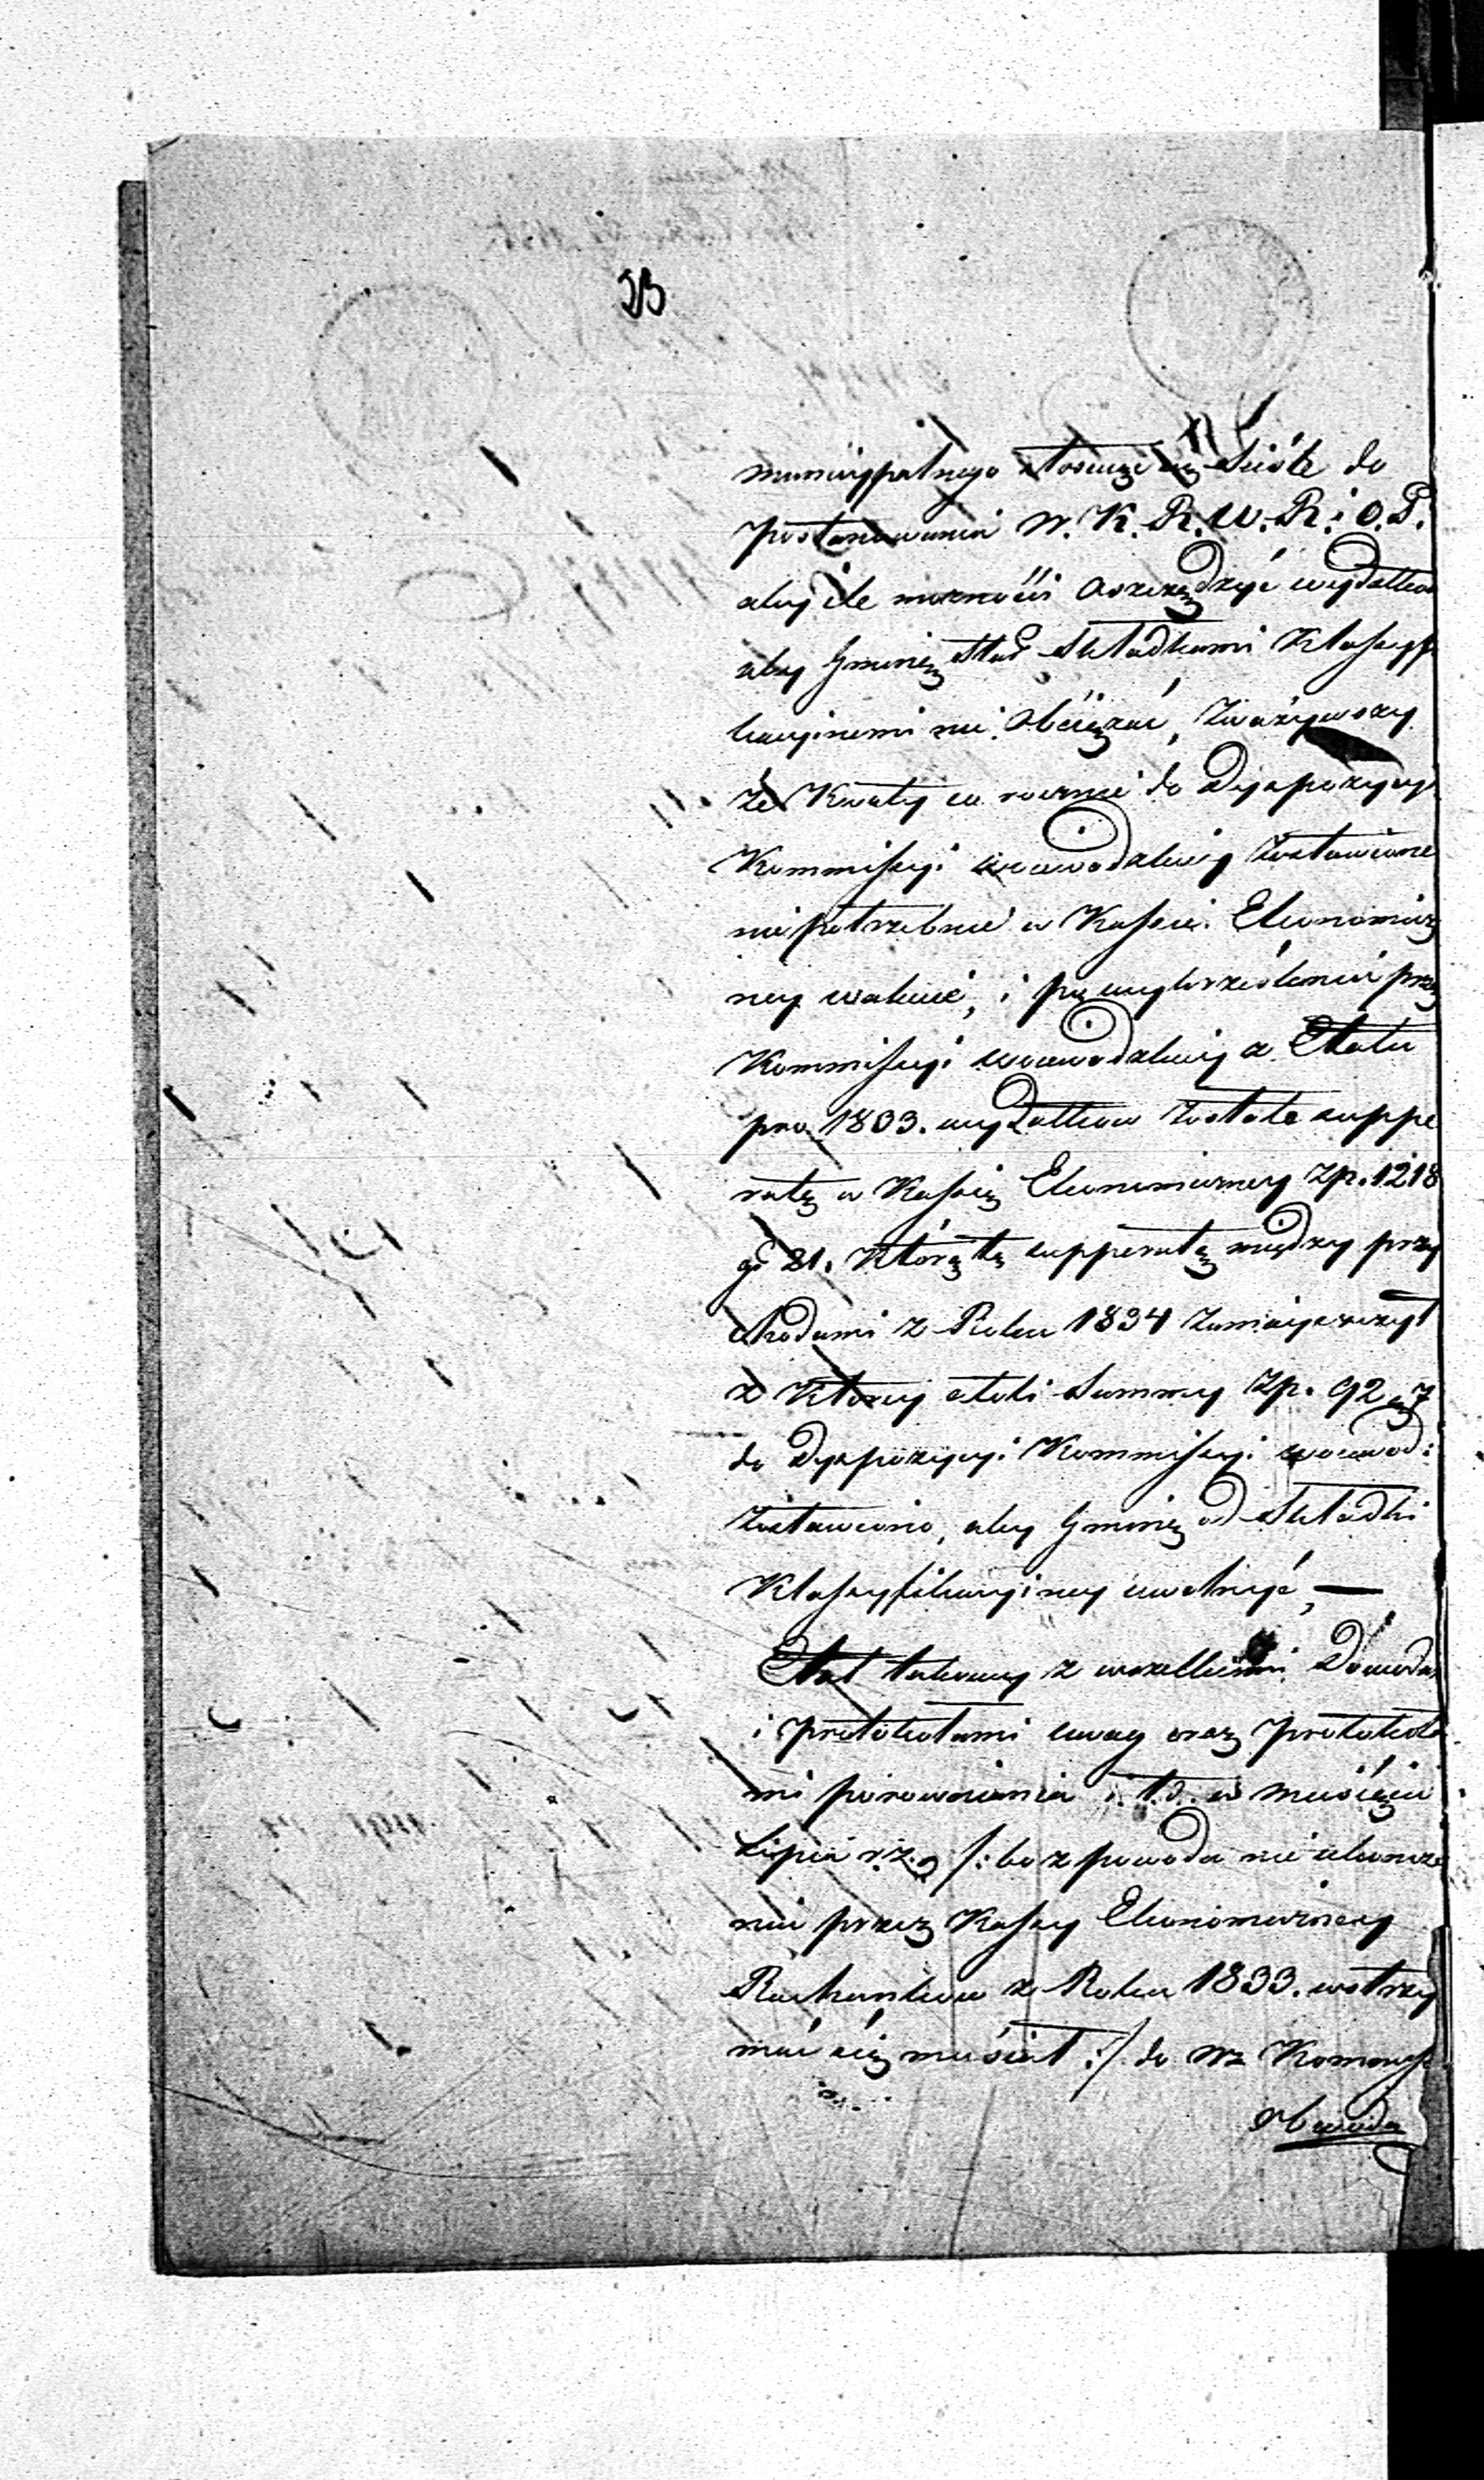 23
municypalnego stosując się ściśle do
postanowienia W. K. R. W. R. i O. P.
aby ile możności oszczędzyć wydatków
aby Gminę staź składkami Klassyfi
kacyinemi nie obciążać, zważywszy
że Kwoty co rocznie do Dyspozycyi
Kommissyi woiewodzkiey zostawione
niepotrzebnie w Kassie Ekonomicz
ney waluie, i po wykreśleniu przez
Kommissyi woiewodzkiey z Etatu
pro 1833. wydatkow zostało suppe
ratę w Kassie Ekonomiczney zp. 1218
gr 21. Którą tę supperatę między przy
chodami z Roku 1834 zamieycszył
z Ktorey etoli Summy zp. 92 g 7
do Dyspozycyi Kommissyi woiewod:
zostawiono, aby Gminę od Składki
Klassyfikacyiney uwolnić, —
Etat takowy z wszelkiemi Dowoda
i protokołami uwag oraz protokoła
mi porownania i. t. d. w miesiącu
Lipcu r. z. /: bo z powodu nie ukończe
nia przez Kassę Ekonomiczney
Rachunkow z Roku 1833. wstrzy
mać się musiał :/ do Wz Kommiss
Obwodu